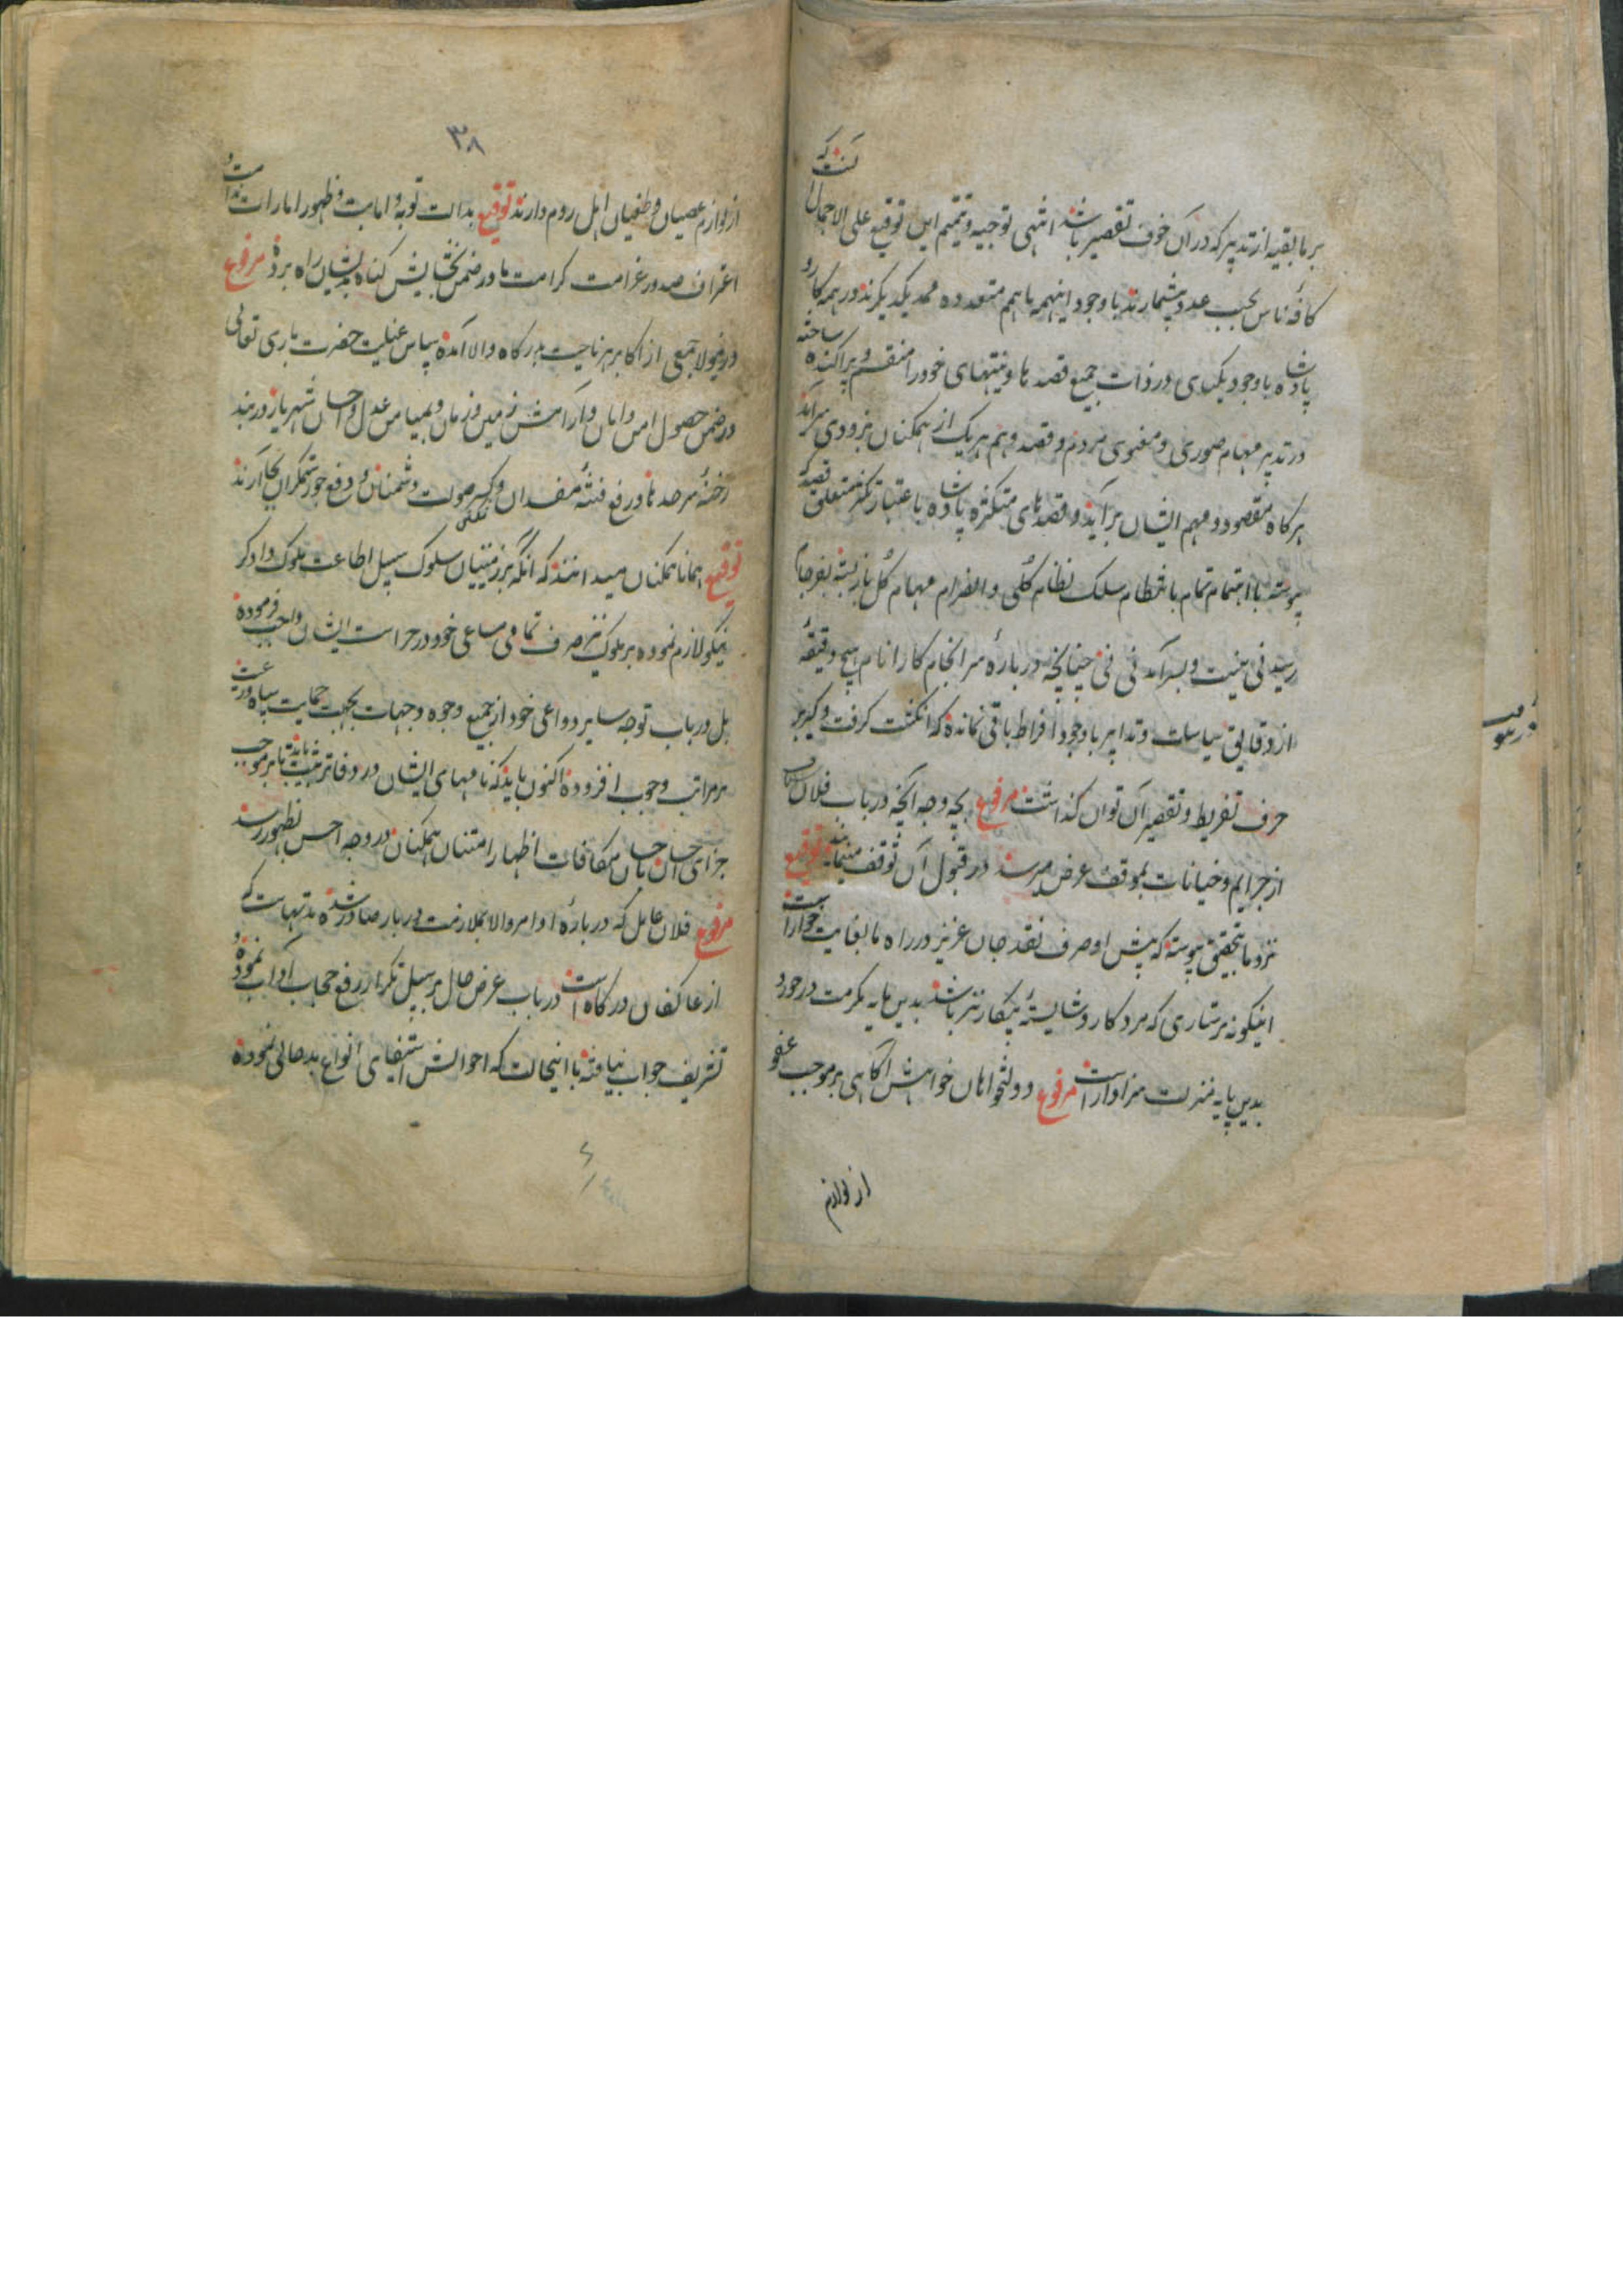 بر ما بقیه از تدبیر که در آن خوف تقصیر باشد انتهی توجیه و تتمیم این توقیع علی الاجمال آنست که
کافهٔ ناس بحسب عدد بیشمارند با وجود اینهمه با هم متعدده ممد یکدیگرند در همه کار و
پادشاه با وجود یکتای در ذات جمیع قصدها و نیتهای خود را منقسم و پراکنده ساخته
در تدبیر مهام صوری و معنوی مردم و قصد و هم هر یک از همکنان بزودی سر آید
هر کاه مقصود و مهم ایشان برآید و قصدهای متکثره پادشاه باعتبار تکثر متعلق قصد که
پیوسته با اهتمام تمام بانتظام سلک نظام کلی و انصرام مهام کل باز بسته بفرجام
رسیدنی نیست و بسر آمدنی نی چنانچه در بارهٔ سر انجام کار انام هیچ دقیقهٔ
از دقایق سیاسات و تدابیر با وجود افراط باقی نمانده که انکشت کرفت و کیر بر
حرف تفریط و تقصیر آن توان کذاشت مرفوع بچه وجه آنچه در باب فلان
از جرایم و خیانات بموقف عرض میرسد در قبول آن توقف مینماید توقیع
نزد ما بتحقیق پیوسته که پیش او صرف نقد جان عزیز در راه ما بغایت خوار است
اینکونه پرستاری که مرد کار و شایستهٔ پیکار نیز باشد بدین مایه مکرمت در خورد
بدین پایه منزلت سزاوار است مرفوع دولتخواهان خواهش آکاهی بر موجب عفو
از لوازم
۳۸
از لوازم عصیان و طغیان اهل روم دارند توقیع بدالت توبه و انابت و ظهور امارات ندامت و
اعتراف صدور غرامت کرامت ما در ضمن بخشایش کناه بدیشان راه برده مرفوع
درینولا جمعی از اکابر هر ناحیت بدرکاه والا آمده سپاس عنایت حضرت باری تعالی
در ضمن حصول امن و امان و آرامش زمین و زمان و بمیامن عدل و احسان شهریار در بند
رخنهٔ سرحدها و رفع فتنهٔ مفسدان و کسر صولت دشمنان و دفع جور ستمکران بجا آرند
توقیع همانا همکنان میدانند که آنکه بر زمینیان سلوک سبیل اطاعت ملوک دادکر
نیکو لازم نموده بر ملوک نیز صرف تمامی مساعی خود در حراست ایشان واجب فرموده
بل در باب توجه سایر دواعی خود از جمیع وجوه و جهات بجهت حمایت سپاه و رعیت
بر مراتب وجوب افزوده اکنون باید که نامهای ایشان در دفاتر ثبت نمایند تا بر موجب
جزای احسان باحسان مکافات اظهار امتنان همکنان در وجه احسن بظهور رسد
مرفوع فلان عامل که در بارهٔ او امر والا بملازمت دربار صادر شده مدتهاست که
از عاکفان درکاه است در باب عرض حال بر سبیل تکرار رفع حجاب آداب نموده و
تشریف جواب نیافته با اینحالت که احوالش استیفای انواع بدحالی نموده